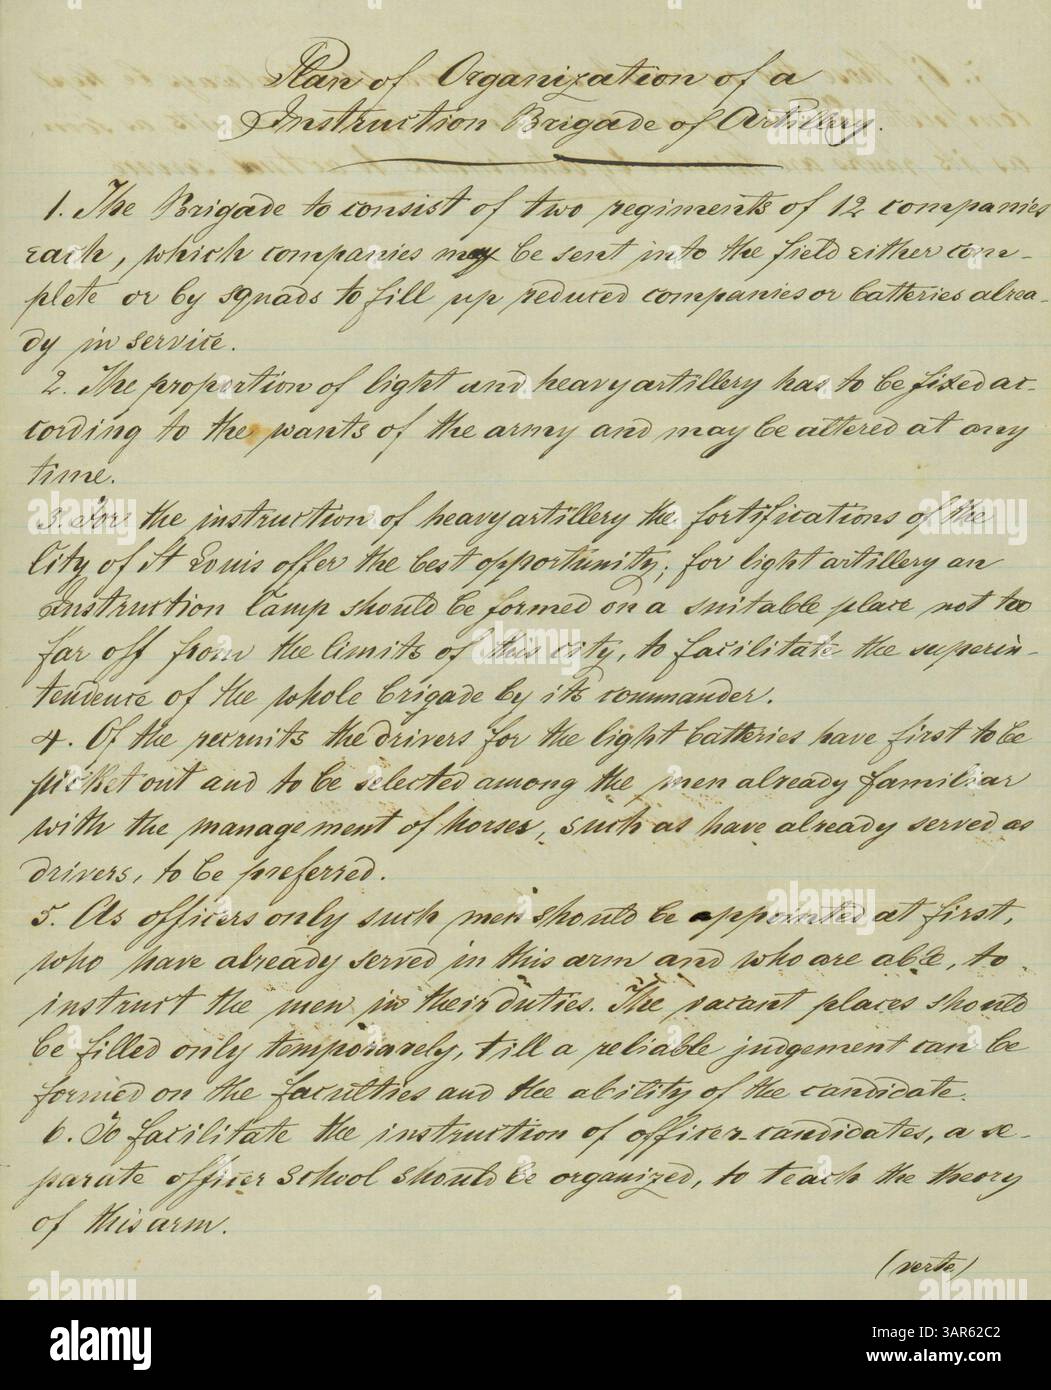 Plan of Organization of a
Instruction Brigade of Artillery.
1. The Brigade to consist of two regiments of 12 companies
each, which companies may be sent into the field either com-
plete or by squads to fill up reduced companies or batteries alrea-
dy in service.
2. The proportion of light and heavy artillery has to be fixed ac-
cording to the wants of the army and may be altered at any
time.
3. For the instruction of heavy artillery the fortifications of the
City of St Louis offer the best opportunity; for light artillery an
Instruction Camp should be formed on a suitable place not too
far off from the limits of this city, to facilitate the superin-
tendence of the whole brigade by its commander.
4. Of the recruits the drivers for the light batteries have first to be
picket out and to be selected among the men already familiar
with the management of horses, such as have already served as
drivers, to be preferred.
5. As officers only such men should be appointed at first,
who have already served in this arm and who are able, to
instruct the men in their duties. The vacant places should
be filled only temporarely, till a reliable judgement can be
formed on the faculties and the ability of the candidate.
6. To facilitate the instruction of officer-candidates, a se-
parate officer school should be organized, to teach the theory
of this arm.
(verte)
alamy
Image ID: 3AR62C2
www.alamy.com